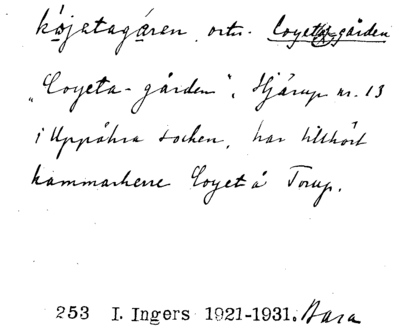 köjetagáren ortn. Coyetagården
„Coyeta-gården", Hjärup nr. 13
i Uppåkra socken, har tillhört
kammarherre Coyet å Torup.
253 I. Ingers 1921-1931. Bara